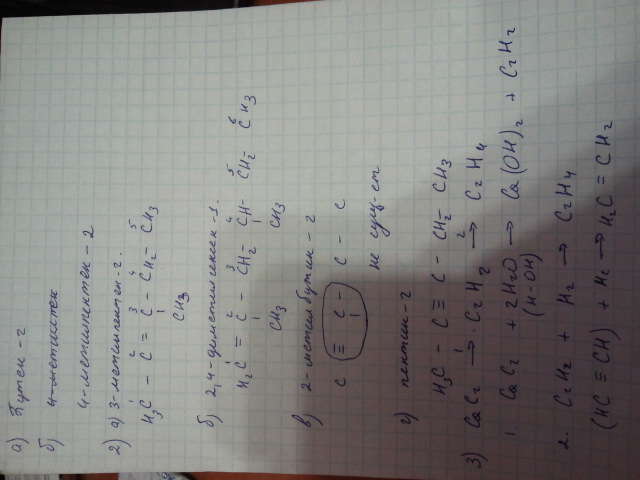 а) Бутен - 2
б) 4-метилпентен - 2
2) а) 3-метилпентен-2.
1 2 3 4 5
H3C - C = C - CH2 - CH3
CH3
б) 2,4-диметилгексен-1.
1 2 3 4 5 6
H2C = C - CH2 - CH - CH2 - CH3
CH3 CH3
в) 2-метилбутин - 2
C ≡ C - C - C
не сущ-ет
г) пентин-2
H3C - C ≡ C - CH2 - CH3
3) CaC2 1→ C2H2 2→ C2H4
1. CaC2 + 2H2O → Ca(OH)2 + C2H2
(H-OH)
2. C2H2 + H2 → C2H4
(HC ≡ CH) + H2 → H2C = CH2